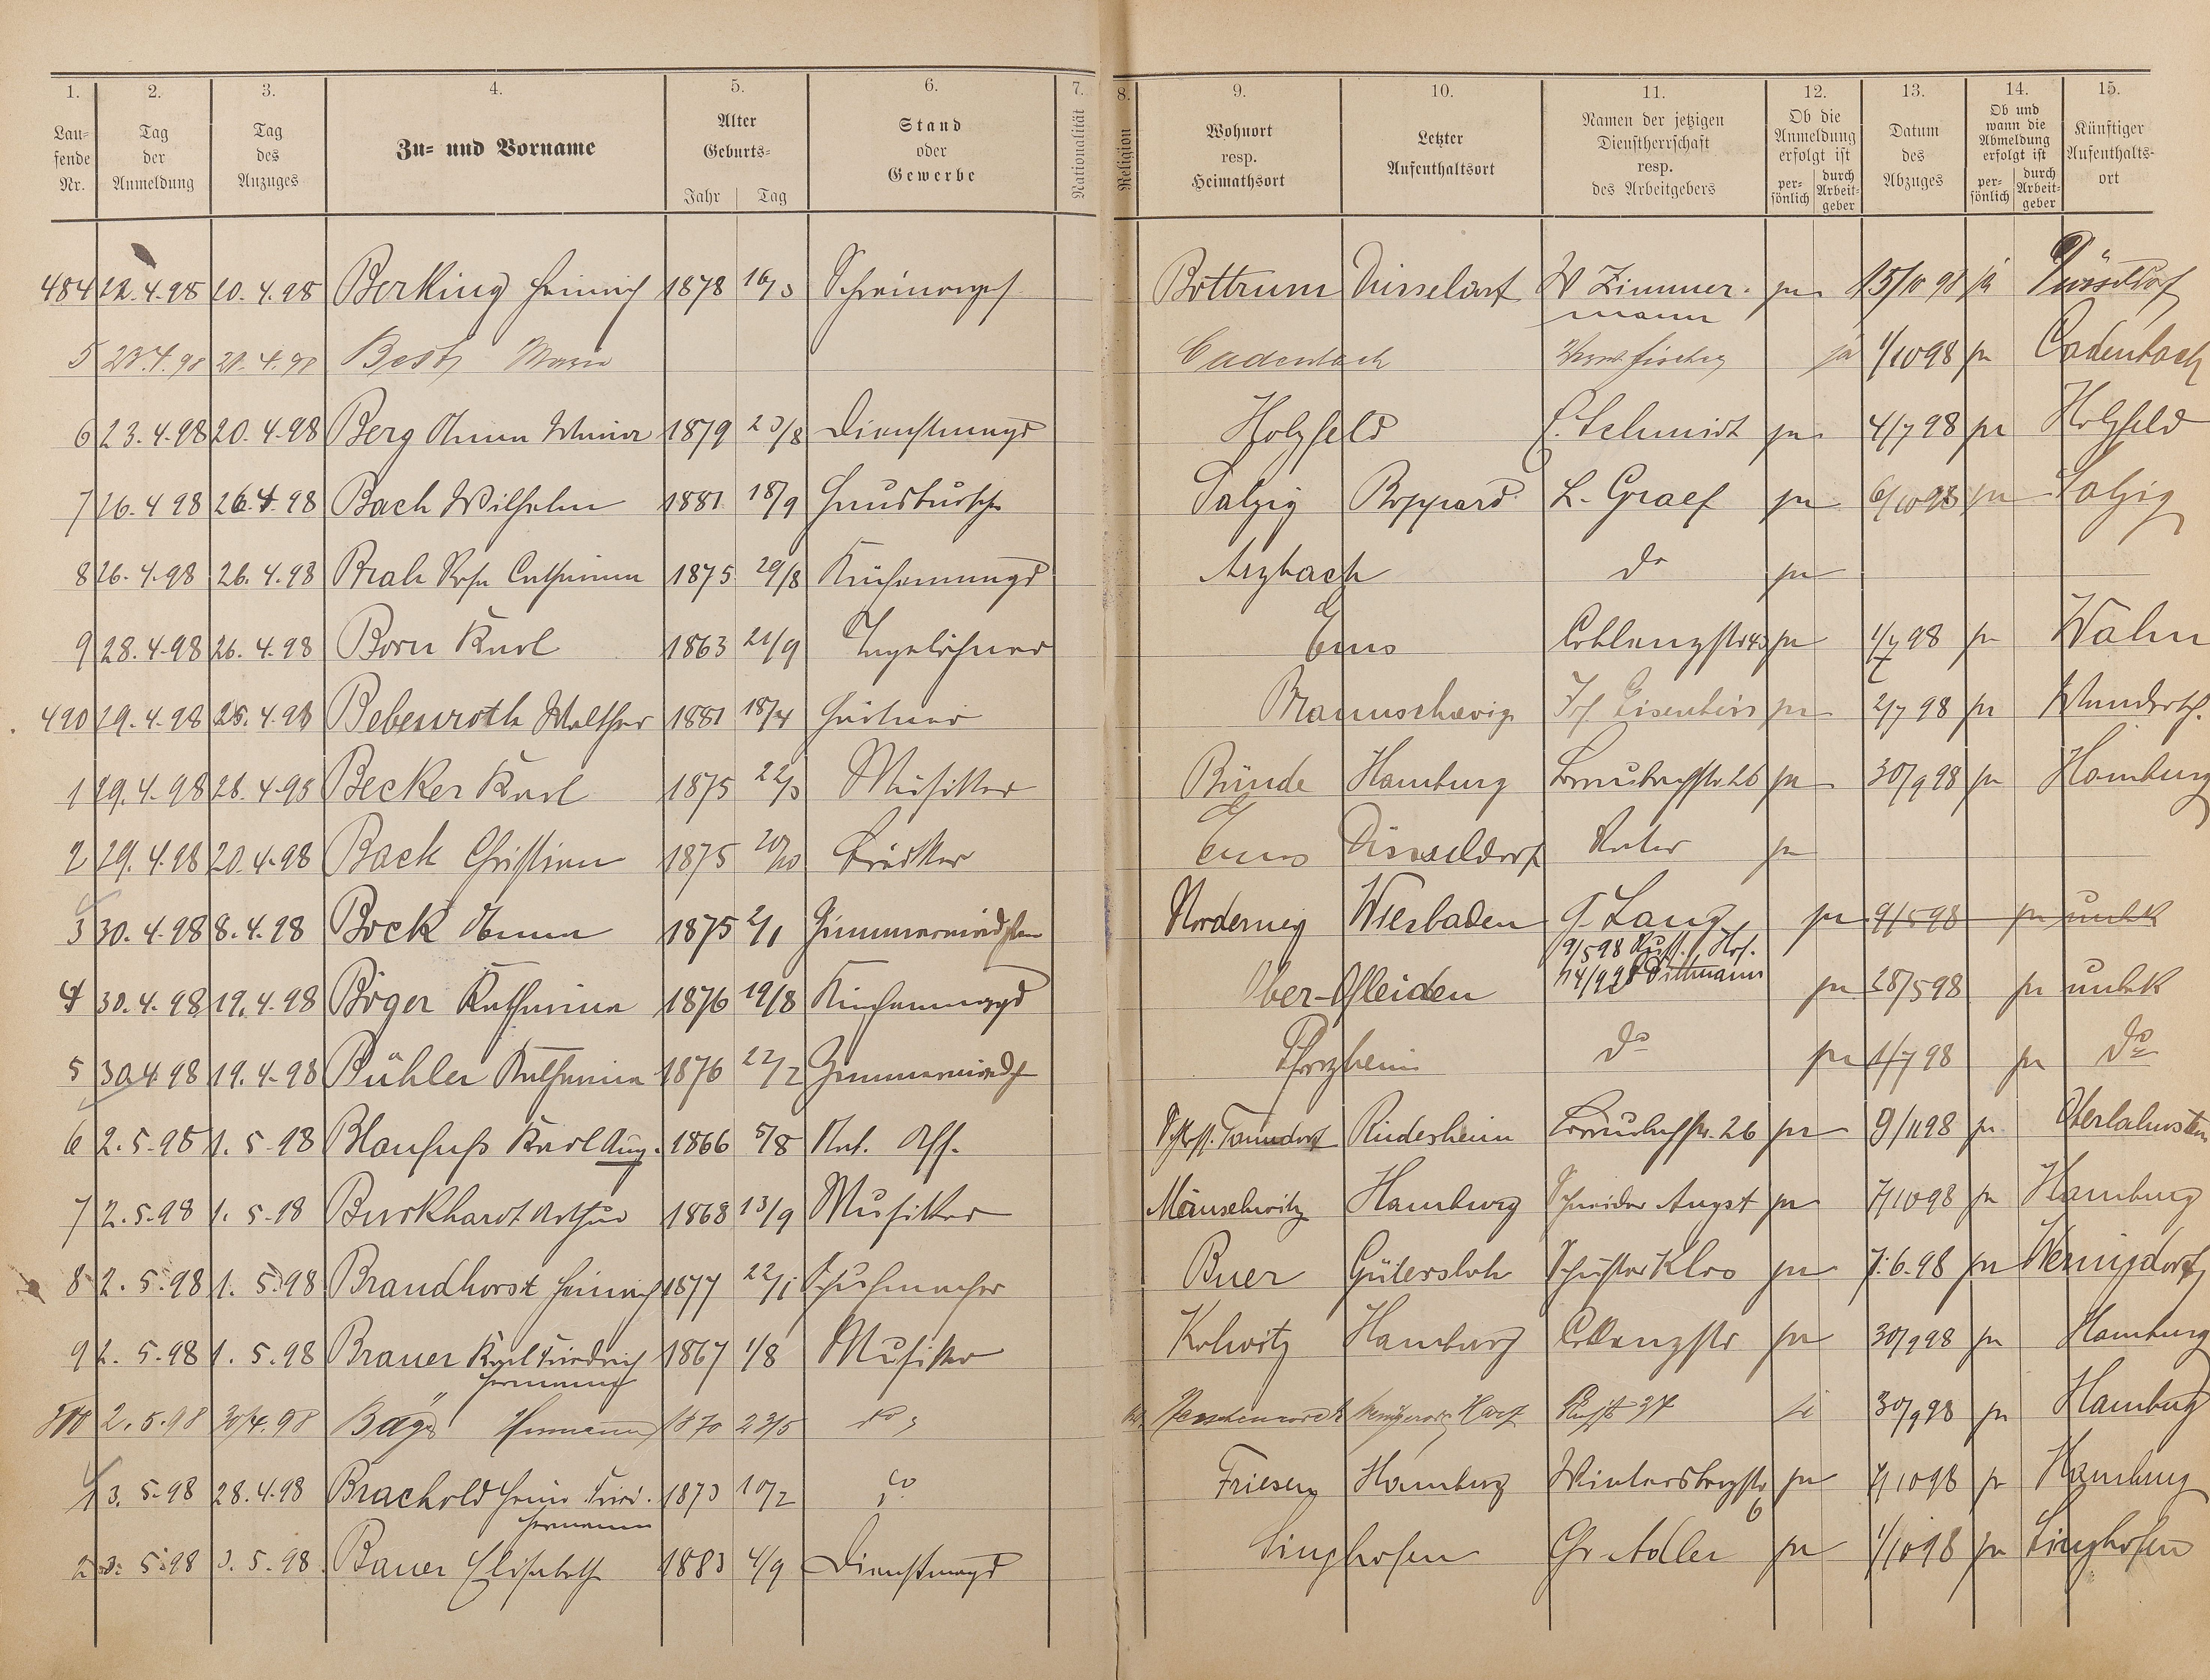 1. 2. 3. 4. 5. 6. 7. 8. 9. 10. 11. 12. 13. 14. 15.
Lau-
fende
Nr.
Tag
der
Anmeldung
Tag
des
Anzuges
Zu- und Vorname
Alter
Geburts-
Jahr Tag
Stand
oder
Gewerbe
Nationalität
Religion
Wohnort
resp.
Heimathsort
Letzter
Aufenthaltsort
Namen der jetzigen
Dienstherrschaft
resp.
des Arbeitgebers
Ob die
Anmeldung
erfolgt ist
per-
sönlich
durch
Arbeit-
geber
Datum
des
Abzuges
Ob und
wann die
Abmeldung
erfolgt ist
per-
sönlich
durch
Arbeit-
geber
Künftiger
Aufenthalts-
ort
484 22.4.98 20.4.98 Berking Heinrich 1878 16/3 Schreinerges. Bottrum Düsseldorf W Zimmer- ja 15/10 98 ja Düsseldorf
mann
5 23.4.98 21.4.98 Best Maria Cadenbach ja 1/10 98 ja Cadenbach
6 23.4.98 20.4.98 Berg Anna Maria 1879 23/8 Dienstmagd Holzfeld C. Schmidt ja 4/7 98 ja Holzfeld
7 26.4 98 26.4.98 Bach Wilhelm 1881 18/9 Hausbursche Salzig Boppard L. Graef ja 6/10 98 ja Salzig
8 26.4.98 26.4.98 Catharina 1875 29/8 Küchenmagd Arzbach do ja
9 28.4.98 26.4.98 Born Karl 1863 21/9 Tagelöhner Ems Coblenzstr ja 1/7 98 ja Wahn
490 29.4.98 25.4.98 Bebenroth Walther 1881 18/4 Braunschweig ja 2/7 98 ja
1 29.4.98 28.4.98 Becker Karl 1875 22/3 Musiker Bünde Hamburg 26 ja 30/9 98 ja Hamburg
2 29.4.98 20.4.98 Back Christian 1875 20/10 Ems Düsseldorf Vater ja
3 30.4.98 8.4.98 Bock Anna 1875 2/1 Zimmermädchen Norderney Wiesbaden G. Lang ja 9/5 98 ja unbek
9/5 98 Russ. Hof.
14/9 28 Dittmann
4 30.4.98 19.4.98 Böger Katharina 1876 19/8 Küchenmagd Ober-Ofleiden ja 28/5 98 ja unbek
5 30.4 98 19.4.98 Bühler Katharina 1876 22/2 Zimmermädch Pforzheim do ja 1/7 98 ja do
6 2.5.98 1.5.98 Blaufuß Karl Aug. 1866 5/8 Schloss. Tanndorf Rüdesheim 26 ja 9/11 98 ja Oberlahnstein
7 2.5.98 1.5.98 Burkhardt Arthur 1868 13/9 Musiker Meuselwitz Hamburg Schneider Augst ja 7/10 98 ja Hamburg
8 2.5.98 1.5.98 Brandhorst Heinrich 1877 22/1 Schuhmacher Buer Gütersloh Schuster Kloo ja 7.6.98 ja
9 2.5.98 1.5.98 Brauer Karl Friedrich 1867 1/8 Musiker Kolwitz Hamburg Coblenzstr ja 30/9 98 ja Hamburg
Hermann
500 2.5.98 30/4.98 Hermann 1870 23/5 do ja 30/9 98 ja Hamburg
1 3.5.98 28.4.98 Brachold Heinr. Fried. 1873 10/2 do Friesen Hamburg Wintersbergstr ja 7/10 98 ja Hamburg
Hermann 6
2 3.5.98 3.5.98 Bauer Elisabeth 1883 4/9 Dienstmagd Singhofen Chr. Adler ja 1/10 98 ja Singhofen